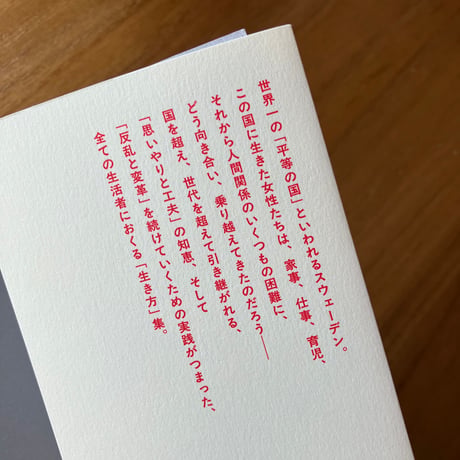 世界一の「平等の国」といわれるスウェーデン。
この国に生きた女性たちは、家事、仕事、育児、
それから人間関係のいくつもの困難に、
どう向き合い、乗り越えてきたのだろう——
国を超え、世代を超えて引き継がれる、
「思いやりと工夫」の知恵、そして
「反乱と変革」を続けていくための実践がつまった、
全ての生活者におくる「生き方」集。